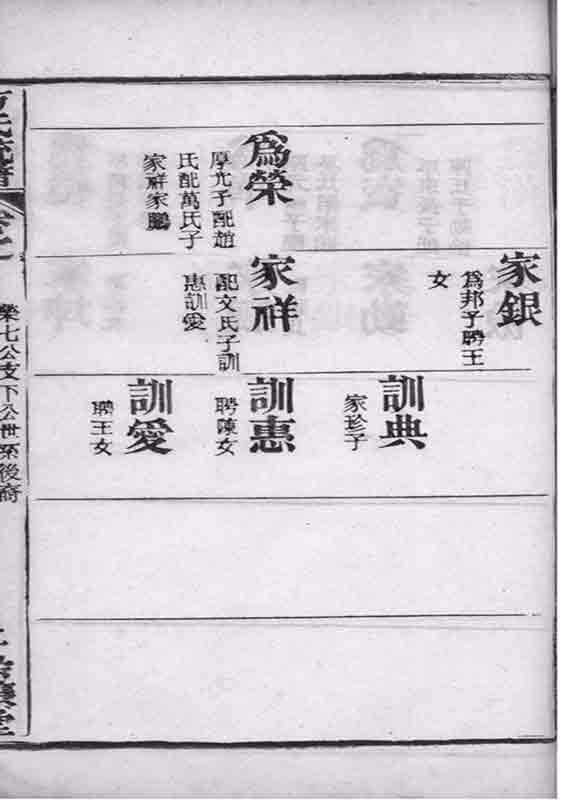 家銀
爲邦子聘王
女
訓典
家珍子
爲榮
厚尤子配趙
氏配萬氏子
家祥家鵬
家祥
配文氏子訓
惠訓愛
訓惠
聘陳女
訓愛
聘王女
七公支下公世系後裔